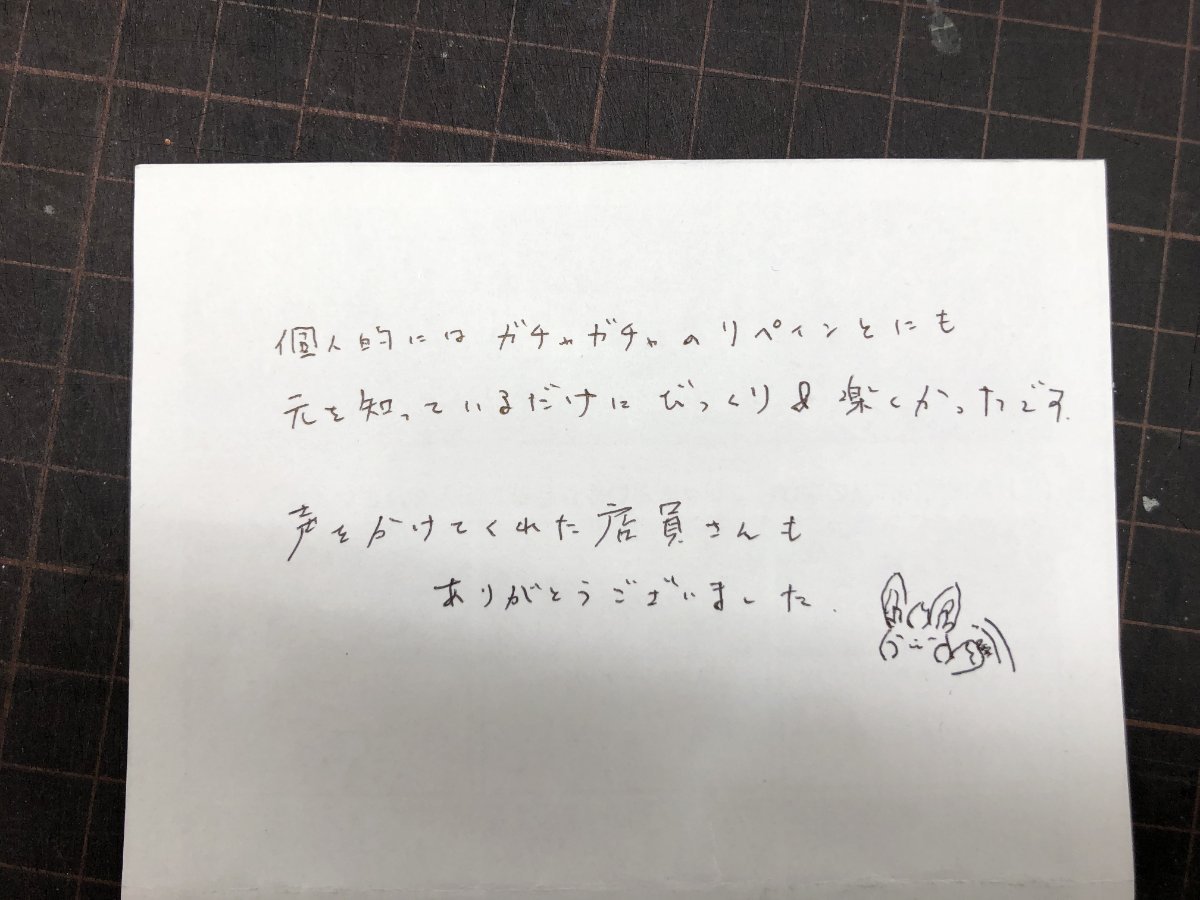 個人的にはガチャガチャのリペイントにも
元を知っているだけにびっくり&楽しかったです.
声をかけてくれた店員さんも
ありがとうございました.